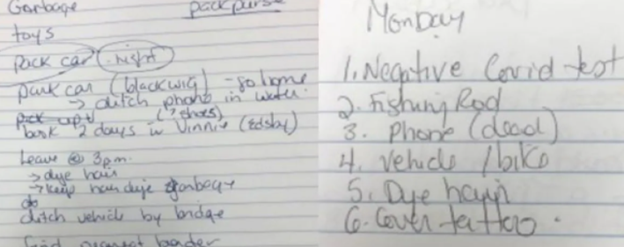 Garbage
pack purse
toys
Pack car night
park car (black wig) - go home
→ ditch phone in water.
(→ shoes)
2 days in Vinnie
Leave @ 3pm.
→ dye hair
→ keep hair dye garbage
ditch vehicle by bridge
find nearest border
Monday
1. Negative Covid test
2. Fishing Rod
3. Phone (dead)
4. Vehicle / bike
5. Dye hair
6. Cover tattoo.